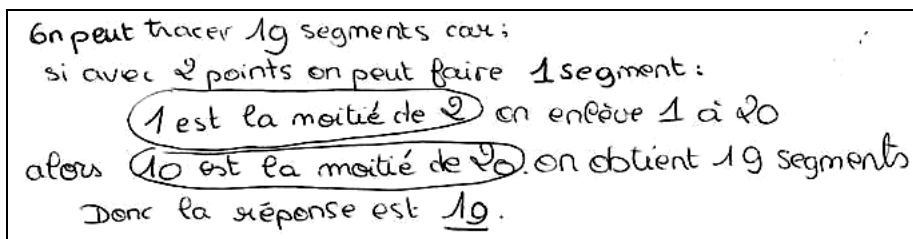 On peut tracer 19 segments car :
si avec 2 points on peut faire 1 segment :
1 est la moitié de 2 on enlève 1 à 20
alors 10 est la moitié de 20. on obtient 19 segments
Donc la réponse est 19.